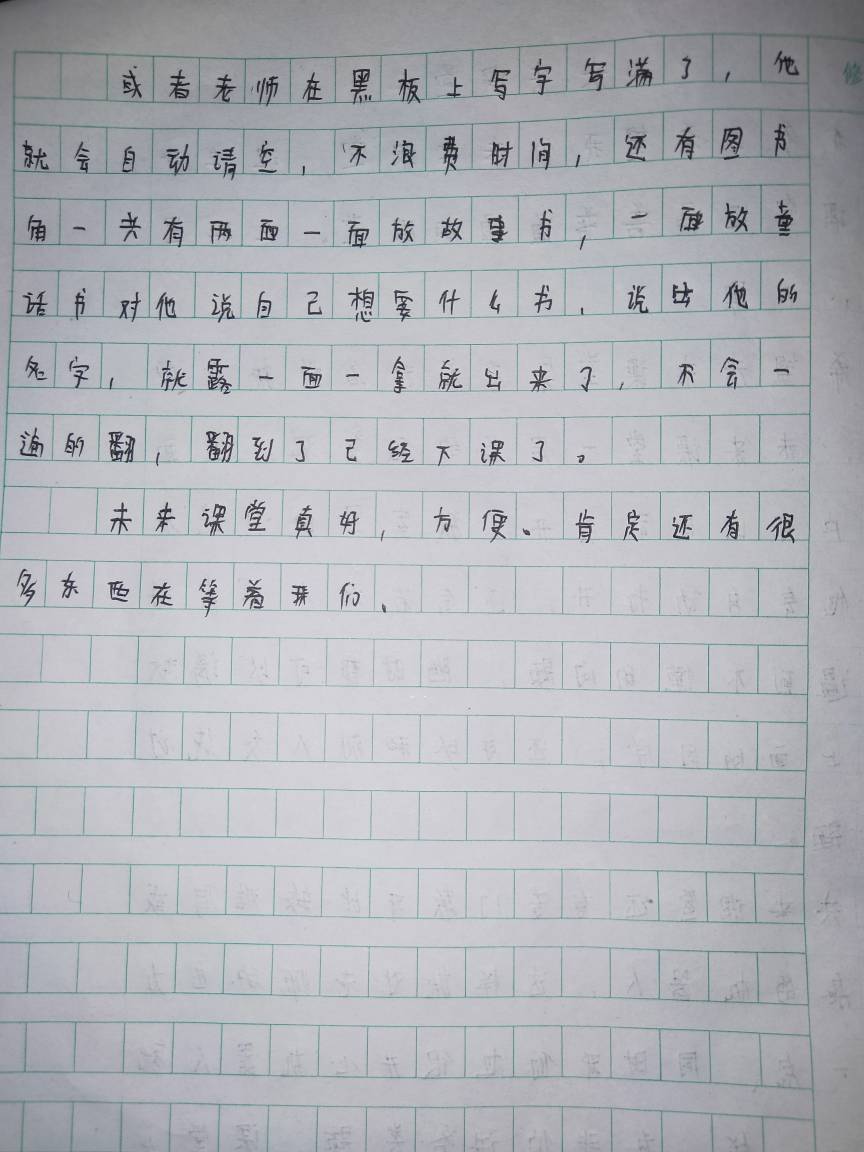 或者老师在黑板上写字写满了，他
就会自动请空，不浪费时间，还有图书
角一共有两面一面放故事书，一面放童
话书对他说自己想要什么书，说出他的
名字，就露一面一拿就出来了，不会一
遍的翻，翻到了已经下课了。
未来课堂真好，方便。肯定还有很
多东西在等着我们、